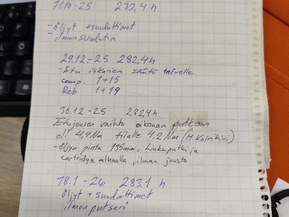 18.11-25 272,4 h
- Öljyt + suodattimet
ilmansuodatin
29.12-25 282,4h
- Etu iskarien säätö talvelle
comp. 1+15
Reb 1+19
30.12-25 282,4h
Etujousien vaihto oikeaan
4,4Nm tilalle 4,2Nm
- Öljyn pinta 135mm, ja
cartridge alhaalla, ilman jousta
18.1-26 283.1 h
Öljyt + suodattimet
ilman putseri